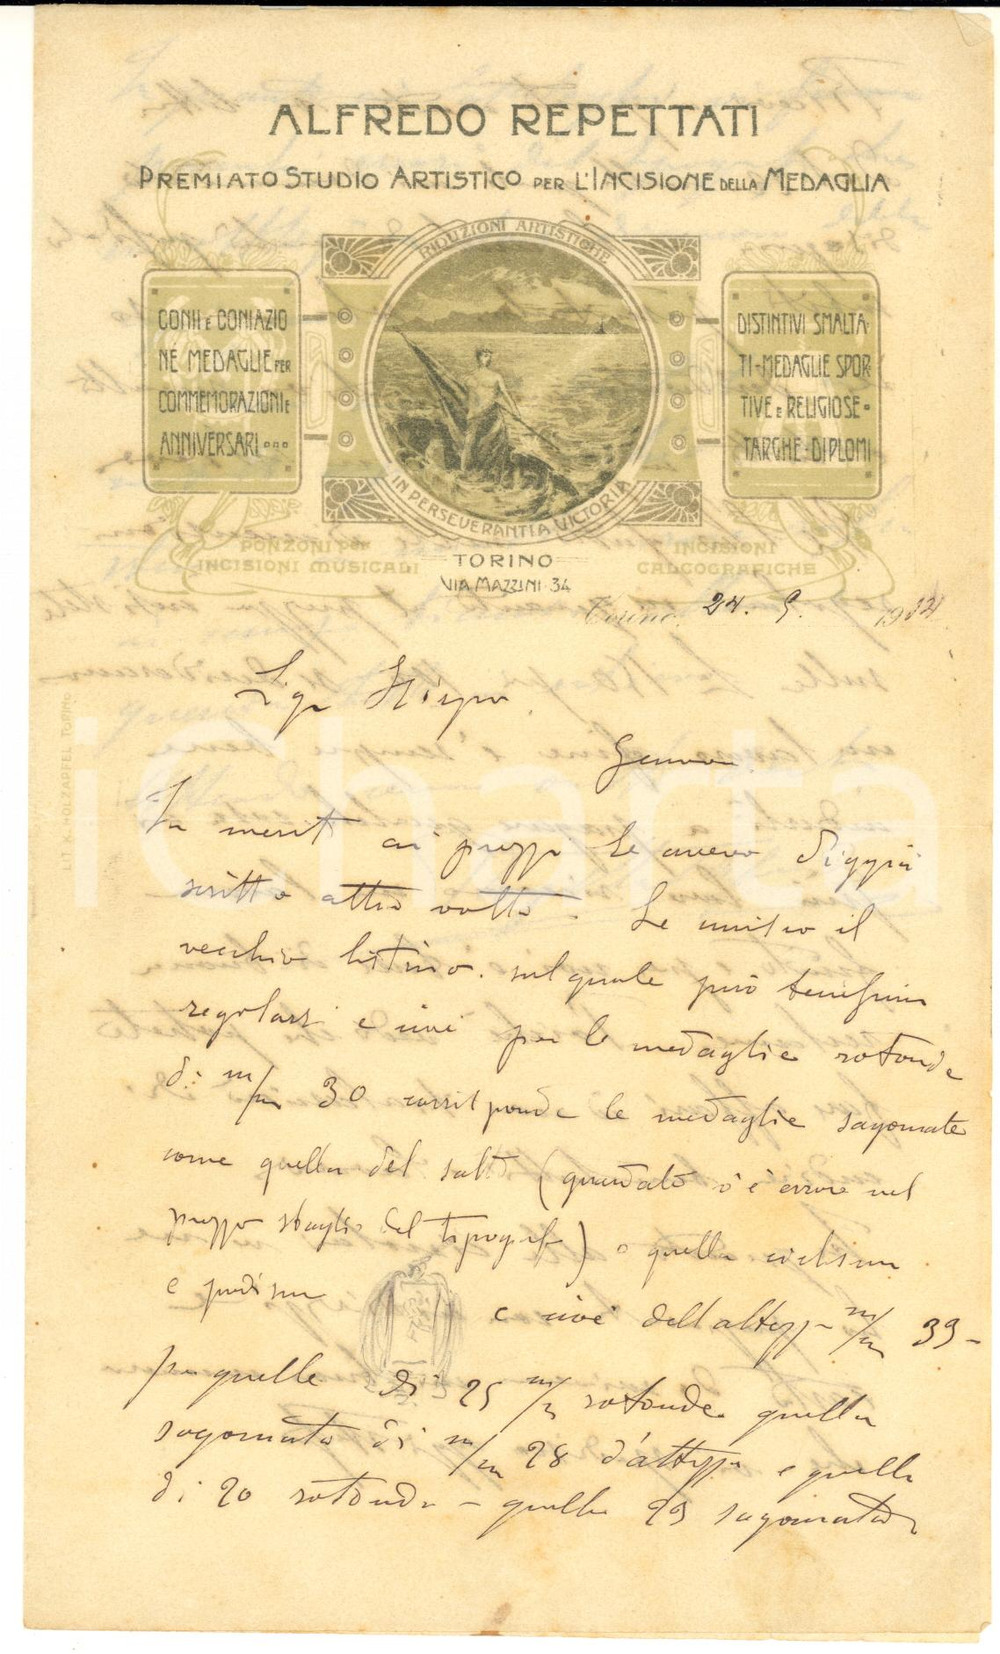 ALFREDO REPETTATI
PREMIATO STUDIO ARTISTICO PER L'INCISIONE DELLA MEDAGLIA
RIDUZIONI ARTISTICHE
CONII E CONIAZIO
NE MEDAGLIE PER
COMMEMORAZIONI E
ANNIVERSARI
DISTINTIVI SMALTA
TI-MEDAGLIE SPOR
TIVE E RELIGIOSE-
TARGHE-DIPLOMI
IN PERSEVERANTIA VICTORIA
PONZONI PER
INCISIONI MUSICALI
TORINO
VIA MAZZINI 34
INCISIONI
CALCOGRAFICHE
Torino, 24. 9. 19
Sigr
Genova
In merito ai prezzi Le avevo diggià
scritto altra volta. Le unisco il
vecchio listino. sul quale può benissimo
regolarsi e cioè per le medaglie rotonde
di m/m 30 corrisponde le medaglie sagomate
come quella del salto (guardate c'è errore nel
prezzo sbaglio del tipografo) o quella ciclismo
e podismo e cioè dell'altezza m/m 39-
per quelle di 25 m/m rotonde quella
sagomata di m/m 28 d'altezza e quella
di 20 rotonda - quella 23 sagomata
LIT. K. HOLZAPFEL TORINO
iCharta